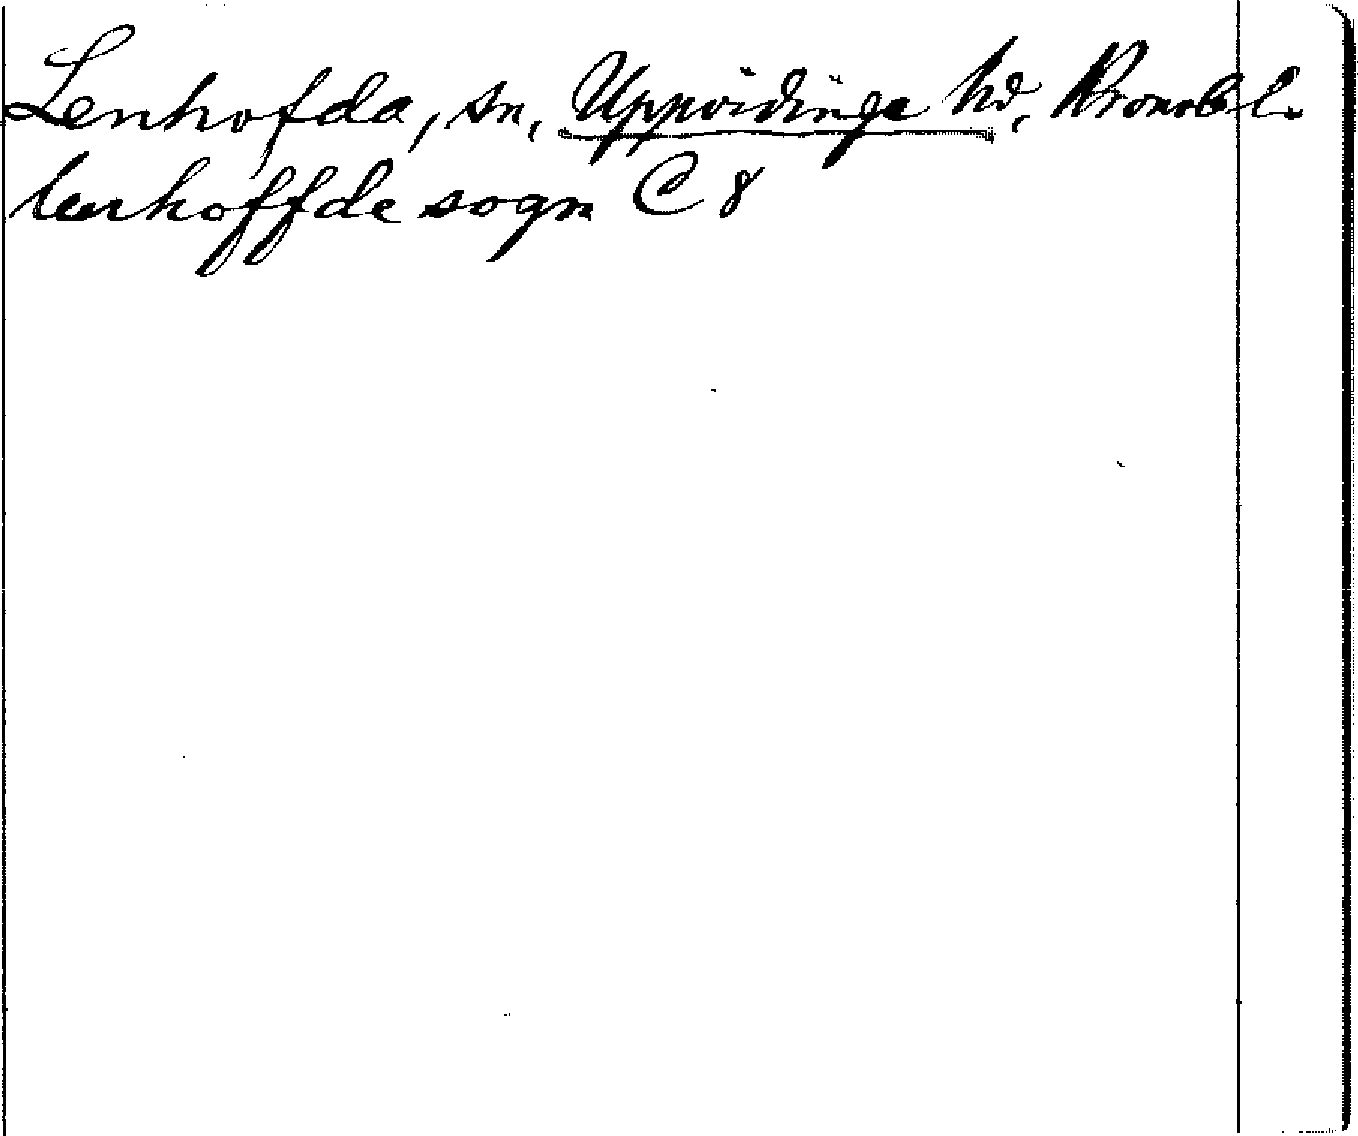 Lenhofda, sn, Uppvidinge hd, Kronob. l.
lenhoffde sogn C 8